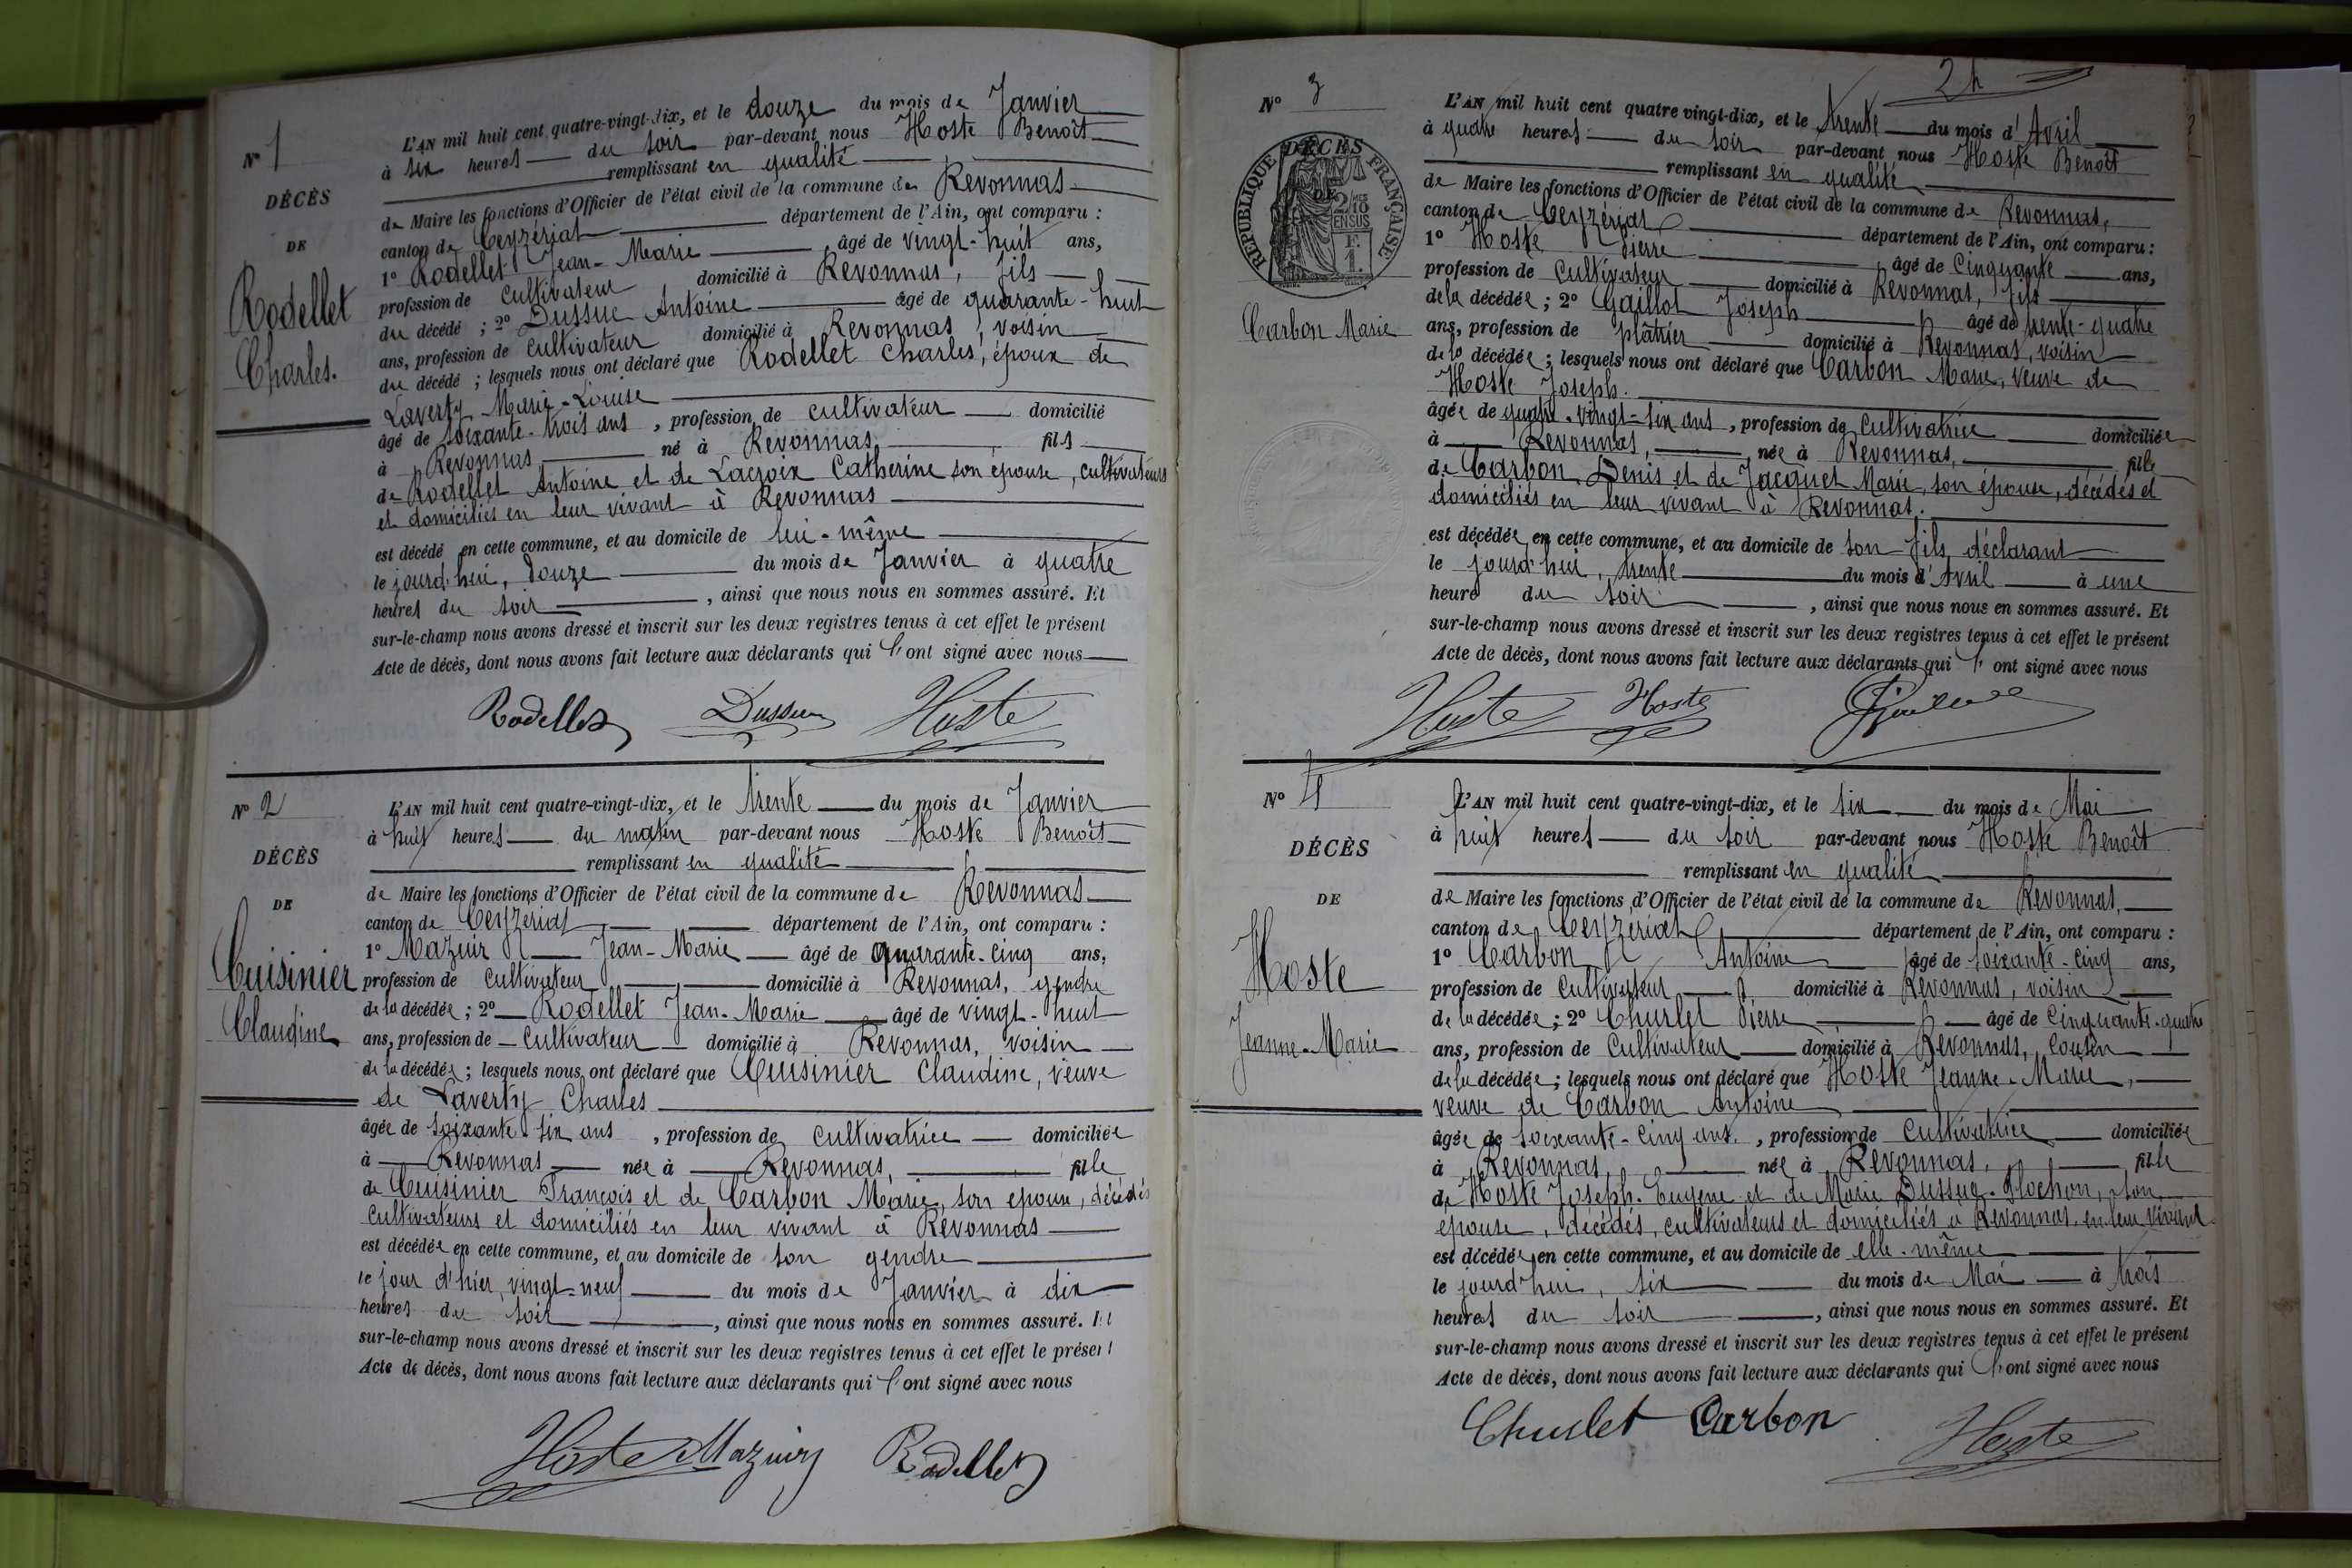 N° 1
DÉCÈS
DE
Rodellet
Charles.
L'AN mil huit cent quatre-vingt-dix, et le douze du mois de Janvier
à six heures du soir par-devant nous Hoste Benoît
remplissant en qualité
de Maire les fonctions d'Officier de l'état civil de la commune de Revonnas
canton de Ceyzériat département de l'Ain, ont comparu :
1° Rodellet Jean-Marie âgé de vingt-huit ans,
profession de cultivateur domicilié à Revonnas, fils
du décédé ; 2° Dussuc Antoine âgé de quarante-huit
ans, profession de cultivateur domicilié à Revonnas, voisin
du décédé ; lesquels nous ont déclaré que Rodellet Charles, époux de
Laverty Marie-Louise
âgé de soixante-trois ans, profession de cultivateur domicilié
à Revonnas né à Revonnas, fils
de Rodellet Antoine et de Lacroix Catherine son épouse, cultivateurs
et domiciliés en leur vivant à Revonnas
est décédé en cette commune, et au domicile de lui-même
le jourd'hui, douze du mois de Janvier à quatre
heures du soir, ainsi que nous nous en sommes assuré. Et
sur-le-champ nous avons dressé et inscrit sur les deux registres tenus à cet effet le présent
Acte de décès, dont nous avons fait lecture aux déclarants qui l'ont signé avec nous
Rodellet Dussuc Hoste
N° 2
DÉCÈS
DE
Cuisinier
Claudine
L'AN mil huit cent quatre-vingt-dix, et le trente du mois de Janvier
à huit heures du matin par-devant nous Hoste Benoît
remplissant en qualité
de Maire les fonctions d'Officier de l'état civil de la commune de Revonnas
canton de Ceyzériat, département de l'Ain, ont comparu :
1° Mazuir Jean-Marie âgé de quarante-cinq ans,
profession de cultivateur domicilié à Revonnas, gendre
de la décédée ; 2° Rodellet Jean-Marie âgé de vingt-huit
ans, profession de cultivateur domicilié à Revonnas, voisin
de la décédée ; lesquels nous ont déclaré que Cuisinier Claudine, veuve
de Laverty Charles
âgée de soixante-six ans, profession de cultivatrice domiciliée
à Revonnas née à Revonnas, fille
de Cuisinier François et de Carbon Marie, son épouse, décédés
cultivateurs et domiciliés en leur vivant à Revonnas
est décédée en cette commune, et au domicile de son gendre
le jour d'hier, vingt-neuf du mois de Janvier à dix
heures du soir, ainsi que nous nous en sommes assuré. Et
sur-le-champ nous avons dressé et inscrit sur les deux registres tenus à cet effet le présent
Acte de décès, dont nous avons fait lecture aux déclarants qui l'ont signé avec nous
Hoste Mazuir Rodellet
2h
N° 3
RÉPUBLIQUE FRANÇAISE
DÉCÈS
DE
2/10 EN SUS
F. 1.
Carbon Marie
L'AN mil huit cent quatre vingt-dix, et le trente du mois d'Avril
à quatre heures du soir par-devant nous Hoste Benoît
remplissant en qualité
de Maire les fonctions d'Officier de l'état civil de la commune de Revonnas,
canton de Ceyzériat département de l'Ain, ont comparu :
1° Hoste Pierre âgé de cinquante ans,
profession de cultivateur domicilié à Revonnas, fils
de la décédée ; 2° Gaillot Joseph âgé de trente-quatre
ans, profession de plâtrier domicilié à Revonnas, voisin
de la décédée ; lesquels nous ont déclaré que Carbon Marie, veuve de
Hoste Joseph.
âgée de quatre-vingt-six ans, profession de cultivatrice domiciliée
à Revonnas, née à Revonnas, fille
de Carbon Denis et de Jacquet Marie, son épouse, décédés et
domiciliés en leur vivant à Revonnas.
est décédée en cette commune, et au domicile de son fils déclarant
le jourd'hui, trente du mois d'Avril à une
heure du soir, ainsi que nous nous en sommes assuré. Et
sur-le-champ nous avons dressé et inscrit sur les deux registres tenus à cet effet le présent
Acte de décès, dont nous avons fait lecture aux déclarants qui l'ont signé avec nous
Hoste Hoste
N° 4
DÉCÈS
DE
Hoste
Jeanne-Marie
L'AN mil huit cent quatre-vingt-dix, et le six du mois de Mai
à huit heures du soir par-devant nous Hoste Benoît
remplissant en qualité
de Maire les fonctions d'Officier de l'état civil de la commune de Revonnas,
canton de Ceyzériat département de l'Ain, ont comparu :
1° Carbon Antoine âgé de soixante-cinq ans,
profession de cultivateur domicilié à Revonnas, voisin
de la décédée ; 2° Churlet Pierre âgé de cinquante-quatre
ans, profession de cultivateur domicilié à Revonnas, cousin
de la décédée ; lesquels nous ont déclaré que Hoste Jeanne-Marie,
veuve de Carbon Antoine
âgée de soixante-cinq ans, profession de cultivatrice domiciliée
à Revonnas, née à Revonnas, fille
de Hoste Joseph-Eugène et de Marie Dussuc-Flochon, son
épouse, décédés, cultivateurs et domiciliés à Revonnas en leur vivant
est décédée en cette commune, et au domicile de elle-même
le jourd'hui, six du mois de Mai à trois
heures du soir, ainsi que nous nous en sommes assuré. Et
sur-le-champ nous avons dressé et inscrit sur les deux registres tenus à cet effet le présent
Acte de décès, dont nous avons fait lecture aux déclarants qui l'ont signé avec nous
Churlet Carbon Hoste